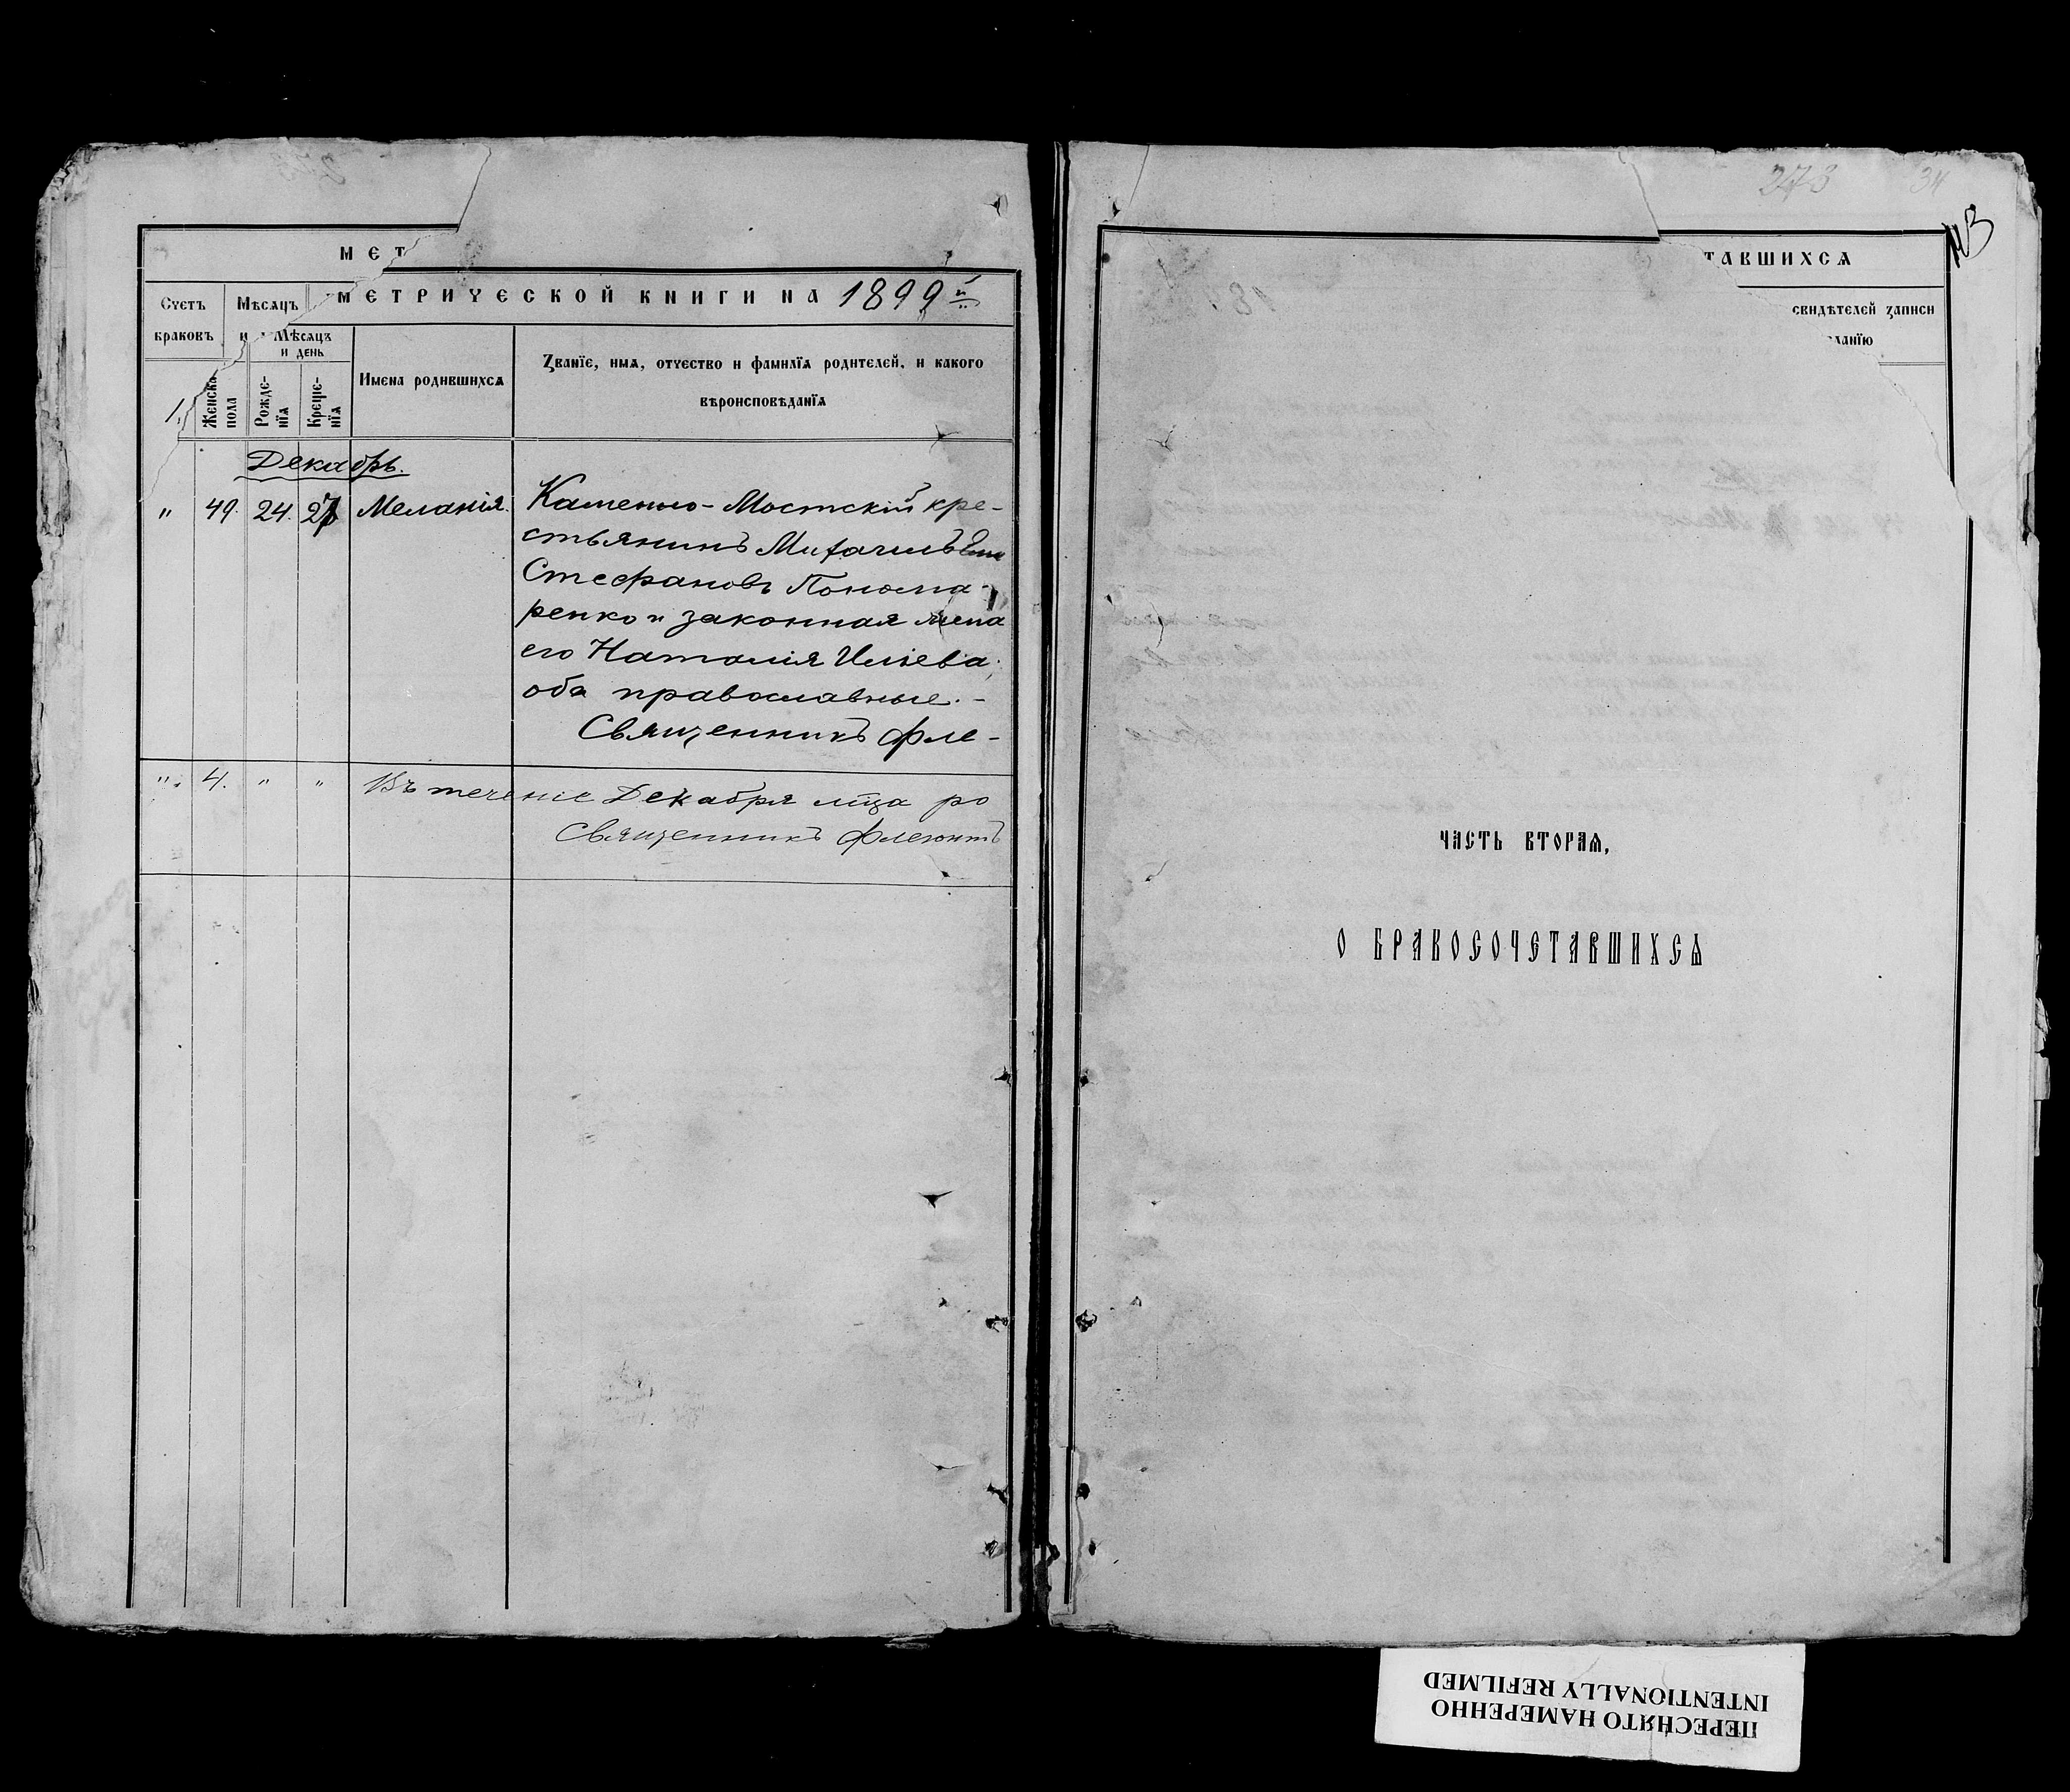 МЕТ
МЕТРИЧЕСКОЙ КНИГИ НА 1899 й
Счетъ
браковъ
Мѣсяцъ
и
Мѣсяцъ
и день
Женска
пола
Рожде-
нїя
Креще-
нїя
Имена родившихся
Званїе, имя, отчество и фамилїя родителей, и какого
вѣроисповѣданїя
Декабрь.
" 49. 24. 27 Меланія.
Каменно-Мостскій кре-
стьянинъ Митрофанъ
Стефановъ Понома-
ренко и законная жена
его Наталія Иліева,
оба православные.-
Священникъ Фле-
" 4. " " Въ теченіе Декабря мца ро
Священникъ Флегонтъ
273 34
ТАВШИХСЯ
свидѣтелей записи
ланїю
ЧАСТЬ ВТОРАЯ,
О БРАКОСОЧЕТАВШИХСЯ
ПЕРЕСНЯТО НАМЕРЕННО
INTENTIONALLY REFILMED